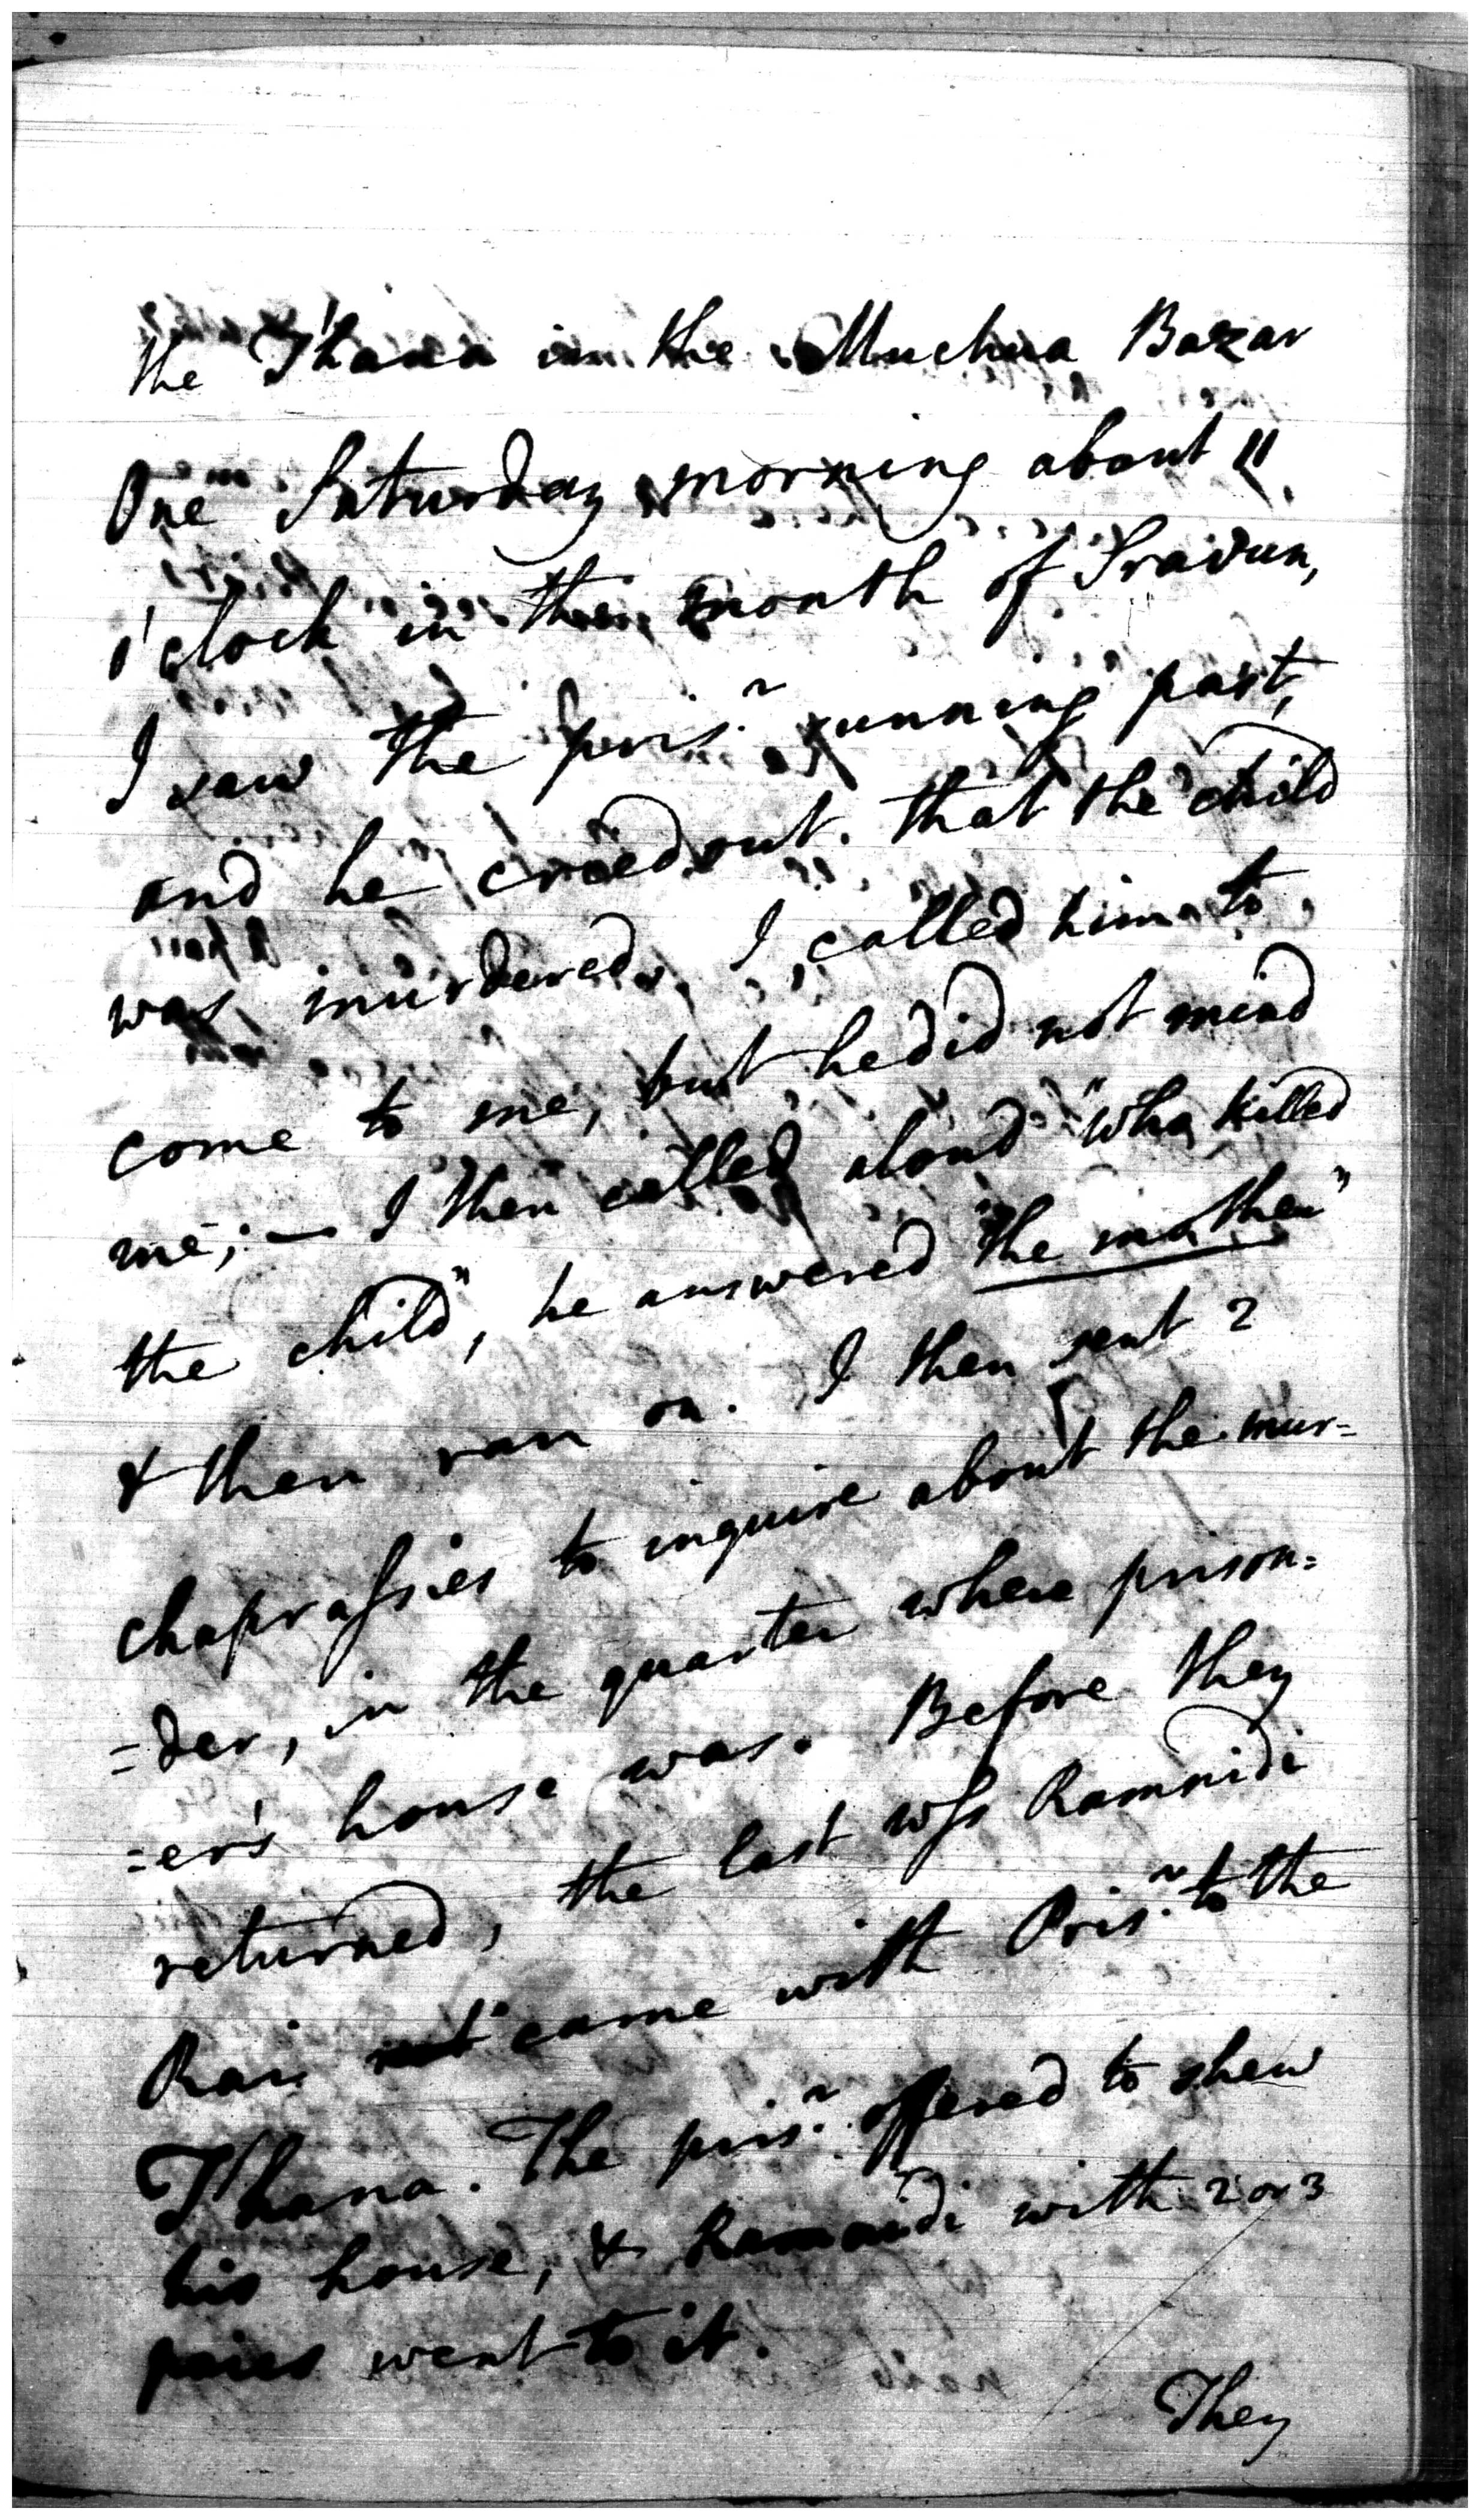 the T'hana in the Muchua Bazar
One Saturday morning about 11
o'clock in the month of Sravun,
I saw the pris.r running past,
and he cried out. that the child
was murdered. I called him to
come to me, but he did not mind
me; — I then called aloud "who killed
the child", he answered "the mother"
& then ran on. I then sent 2
chaprassies to inquire about the mur=
=der, in the quarter where prison=
=er's house was. Before they
returned, the last wss Ramnidi
Rai came with Pris.r to the
T'hana. The pris.r offered to shew
his house, & Ramnidi with 2 or 3
went to it.
They